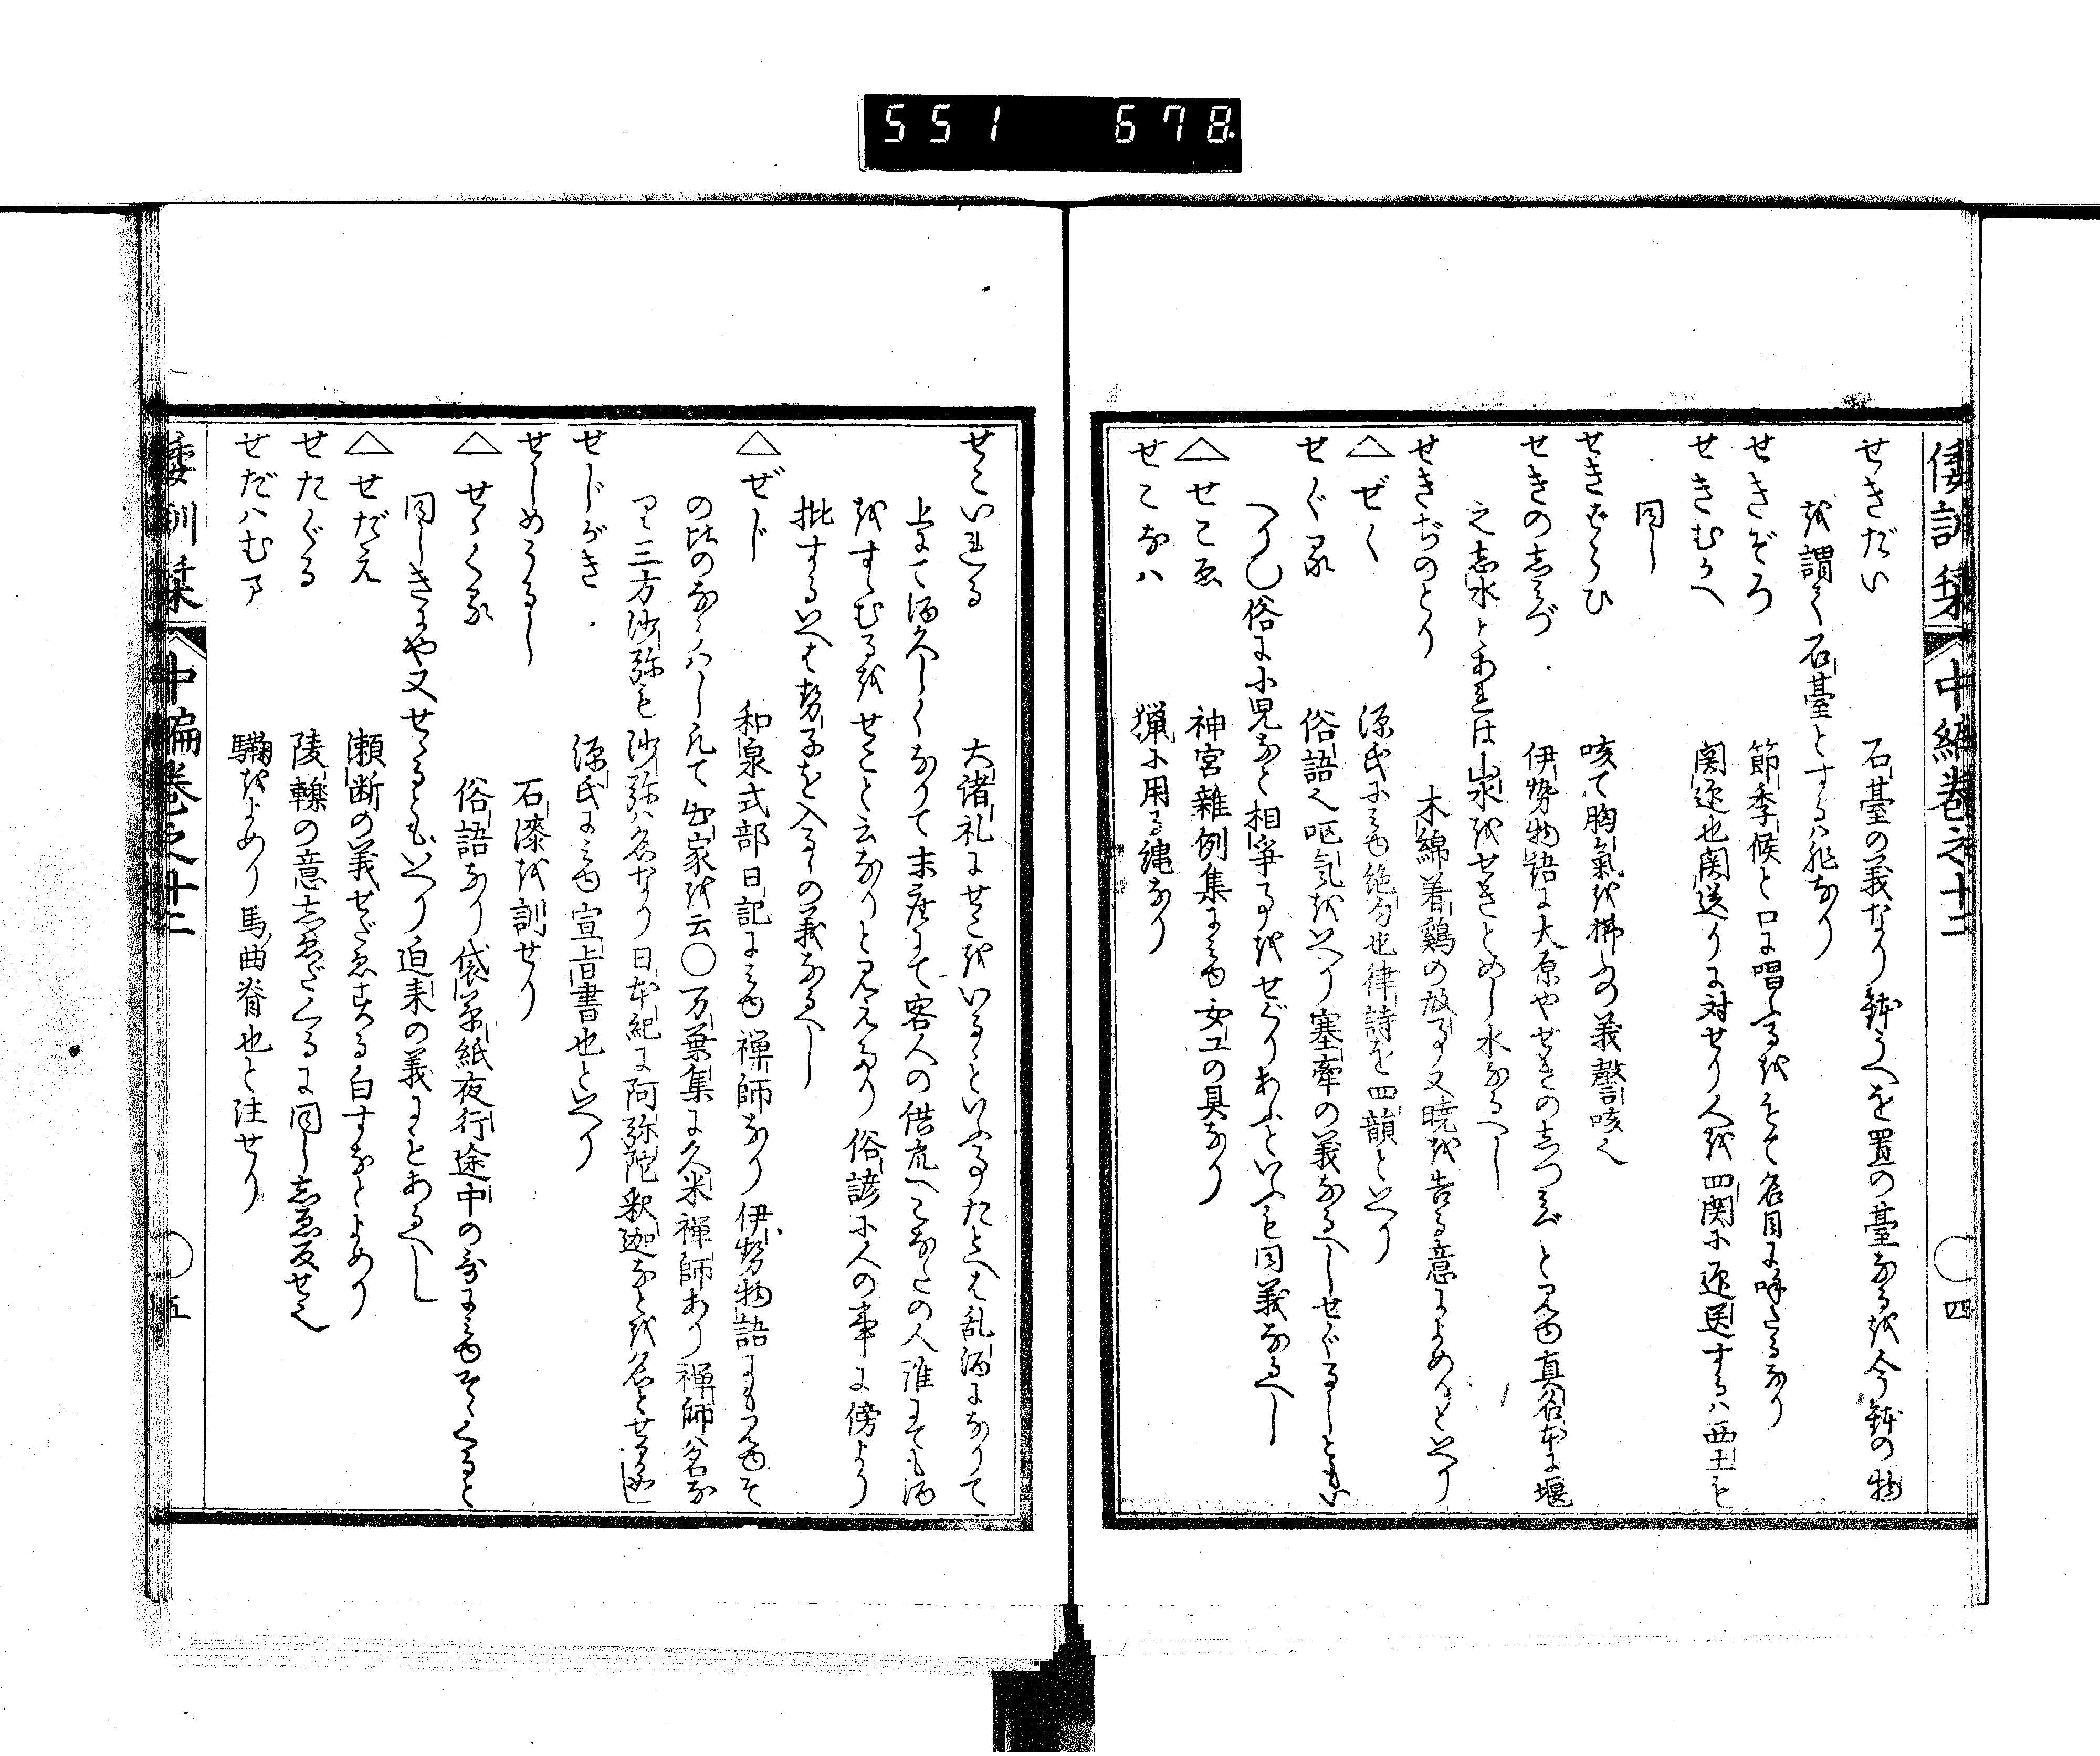 551 678
倭訓栞 中編巻之十二 ○ 四
せきだい 石臺の義なり鉢うへを置の臺なるを今鉢の物
を謂て石臺とするハ非なり
せきぞろ 節季候と口に唱ふるをもて名目に呼たるなり
せきむかへ 関迎也関送りに対せり人を四関に迎送するハ西土も
同し
せきばらひ 咳て胸氣を拂ふの義謦咳也
せきのしみづ 伊勢物語に大原やせきのしつみづと見ゆ真名本に堰
之志水とあれは山泉をせきとめし水なるへし
せきぢのとり 木綿着鶏の故事又暁を告る意によめりといへり
△ぜく 源氏にみゆ絶句也律詩を四韻といへり
せぐる 俗語也呕気をいへり塞牽の義なるへしせぐるしともい
へり○俗に小児なと相爭ふ事をせぐりあふといふも同義なるへし
△せこゑ 神宮雜例集にみゆ女工の具なり
せこなハ 猟に用る縄なり
せこいれる 大諸礼にせこをいるゝといふ事たとへは乱酒になりて
上にて酒久しくなりて末座にて客人の供衆へこなたの人誰にても酒
をすゝむるをせこと云なりと見えたり 俗諺に人の事に傍より
批するといへは勢子を入るゝの義なるへし
△ぜじ 和泉式部日記にみゆ禅師なり伊勢物語にも見ゆそ
の比のならハしにて出家を云○万葉集に久米禅師あり禅師ハ名な
り三方沙弥も沙弥ハ名なり日本紀に阿弥陀釈迦なとを名とせる
せじがき 源氏にみゆ宣旨書也といへり
せしめうるし 石漆を訓せり
△せゝくる 俗語なり袋草紙夜行途中の哥にみゆせゝくると
同しきにや又せゝるともいへり迫来の義にとあるへし
△せだえ 瀬断の義せだえする白すなとよめり
せたぐる 陵轢の意しゑたくるに同ししゑ反せ也
せだハむま 驌をよめり馬曲脊也と注せり
倭訓栞 中編巻之十二 ○ 五